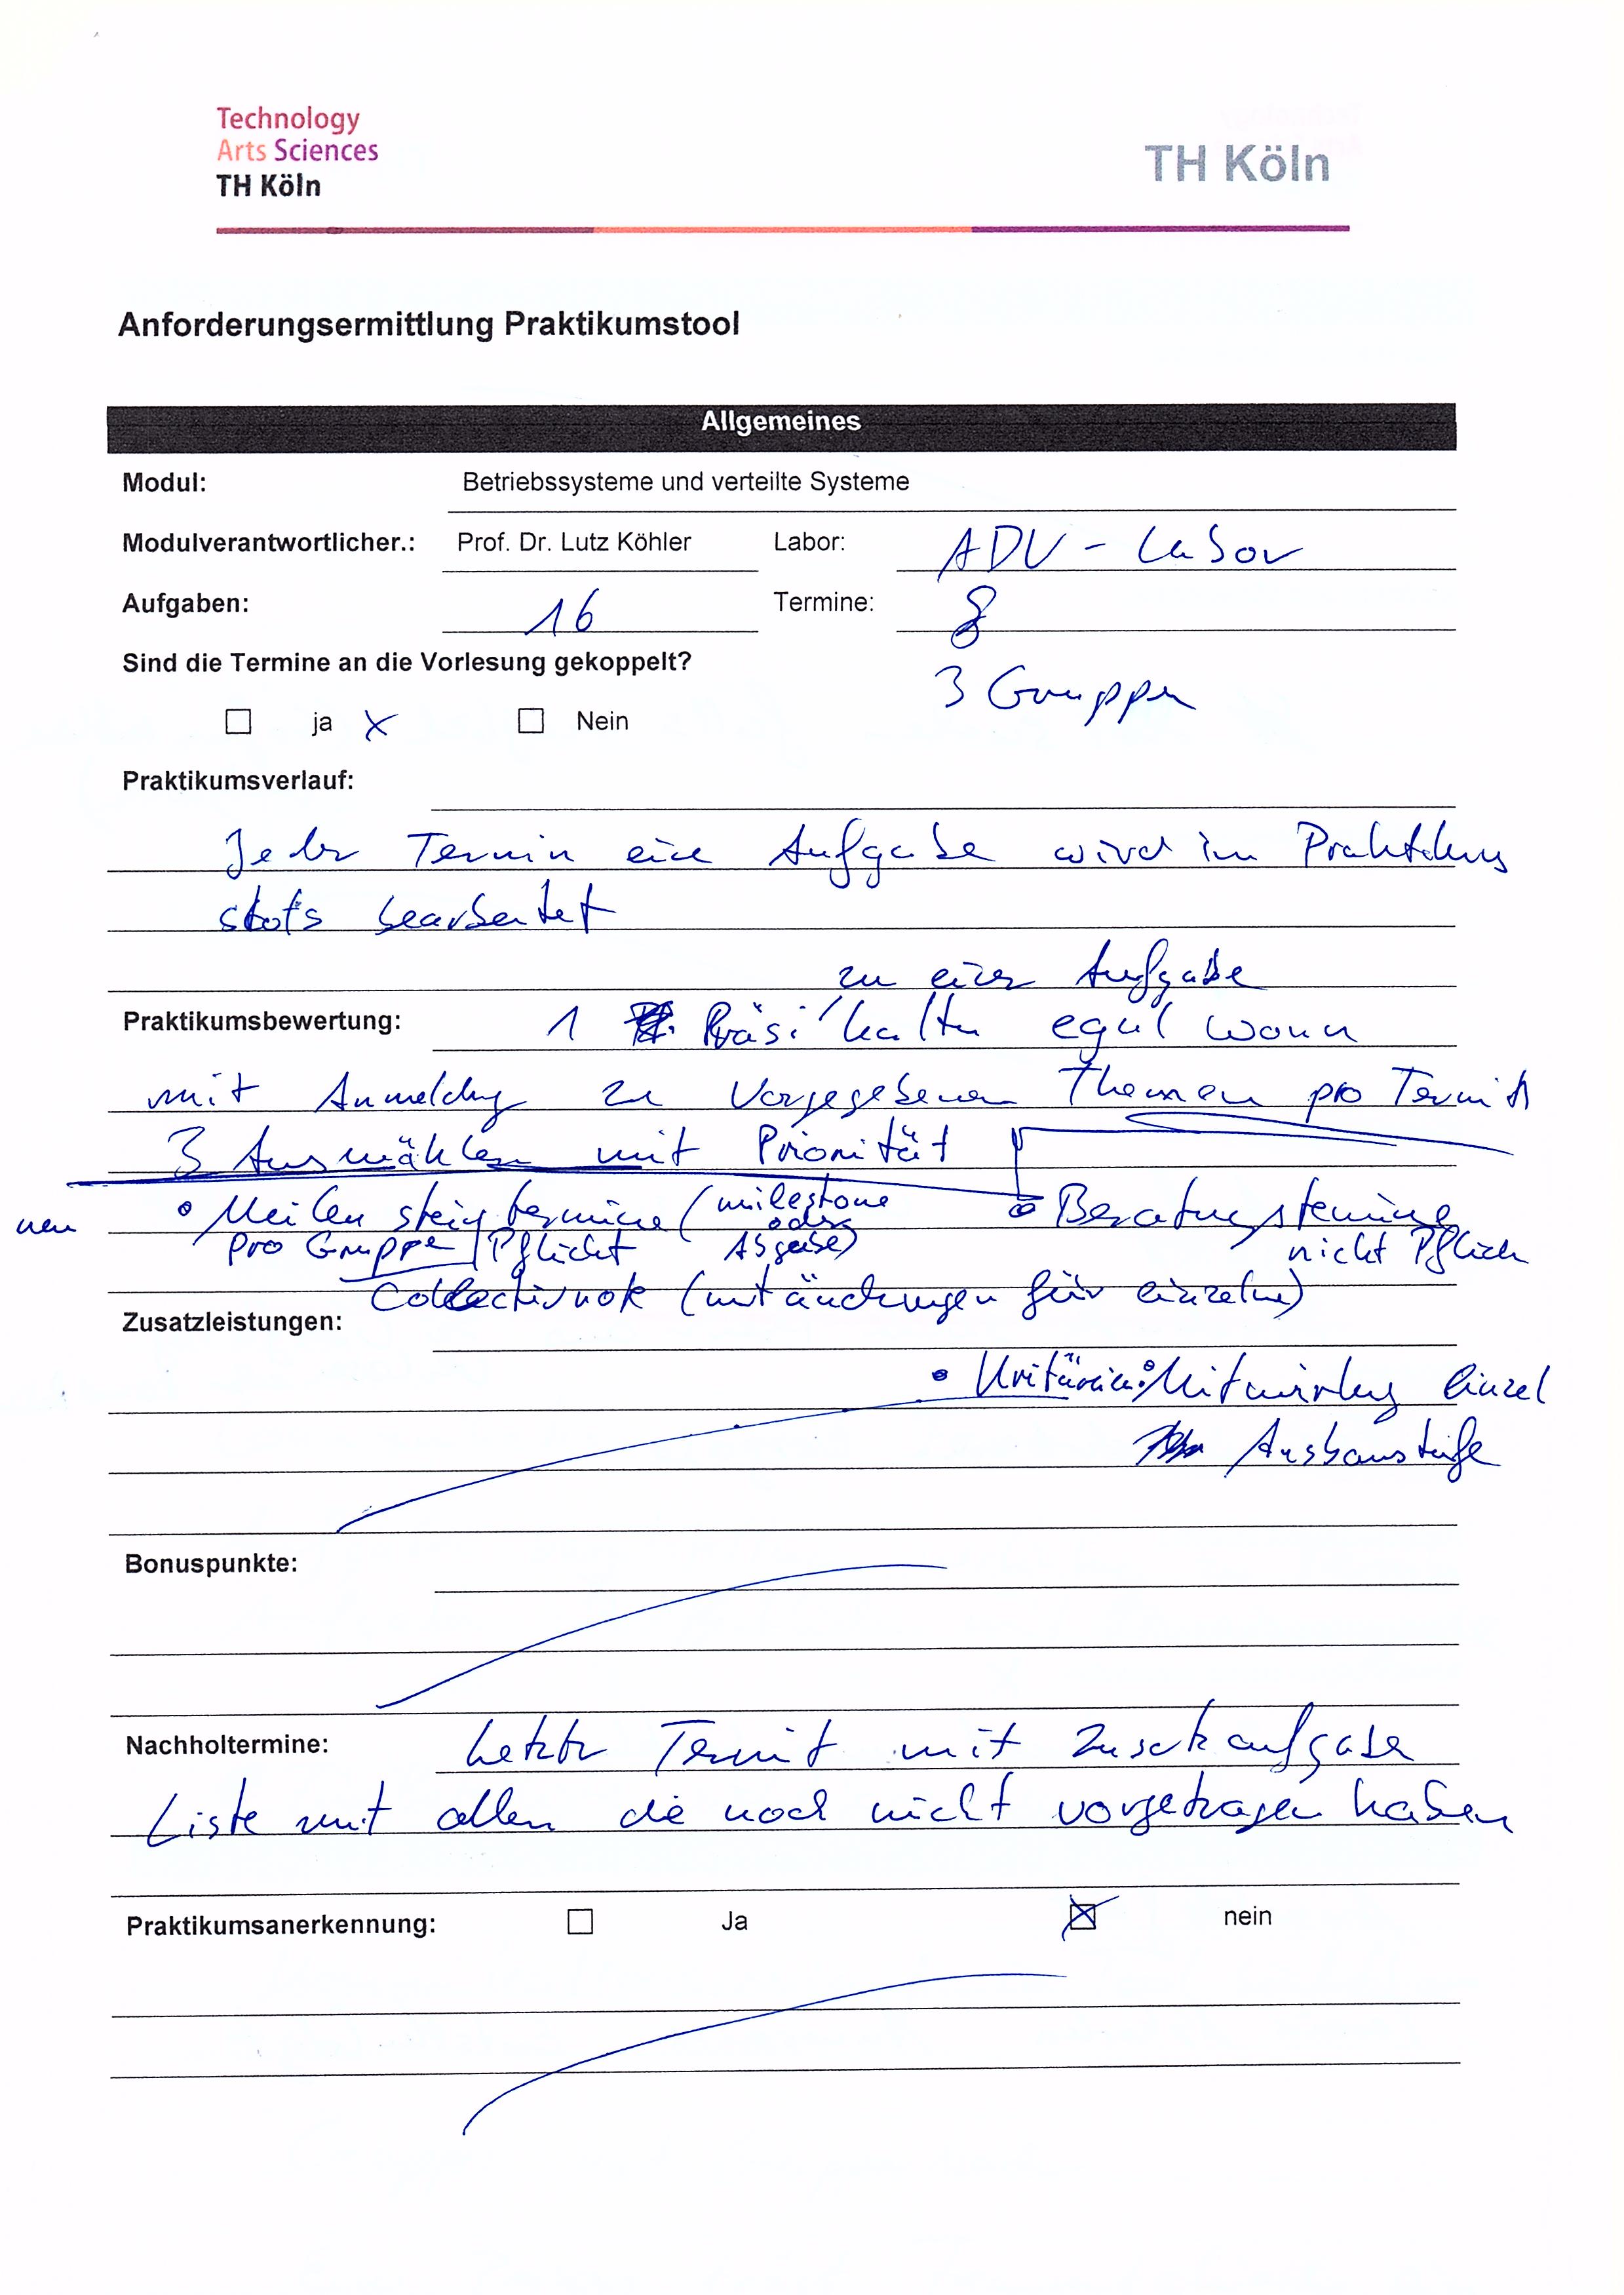 Technology
Arts Sciences
TH Köln
TH Köln
Anforderungsermittlung Praktikumstool
Allgemeines
Modul: Betriebssysteme und verteilte Systeme
Modulverantwortlicher.: Prof. Dr. Lutz Köhler Labor: ADV - Labor
Aufgaben: 16 Termine: 8
Sind die Termine an die Vorlesung gekoppelt?
3 Gruppen
ja x Nein
Praktikumsverlauf:
Jeder Termin eine Aufgabe wird im Praktikum
stets bearbeitet
zu einer Aufgabe
Praktikumsbewertung: 1 Präsi halten egal wann
mit Anmeldung zu vorgegebenen Themen pro Termin
3 Auswählen mit Priorität
neu • Meilensteintermine (milestone oder Abgabe) • Beratungstermine
pro Gruppe / Pflicht nicht Pflicht
Collectivnote (mit änderungen für einzelne)
Zusatzleistungen:
• Kritärien: Mitwirkung einzel
Ausbaustufe
Bonuspunkte:
Nachholtermine: Letzter Termin mit Zusatzaufgabe
Liste mit allen die noch nicht vorgetragen haben
Praktikumsanerkennung: Ja x nein